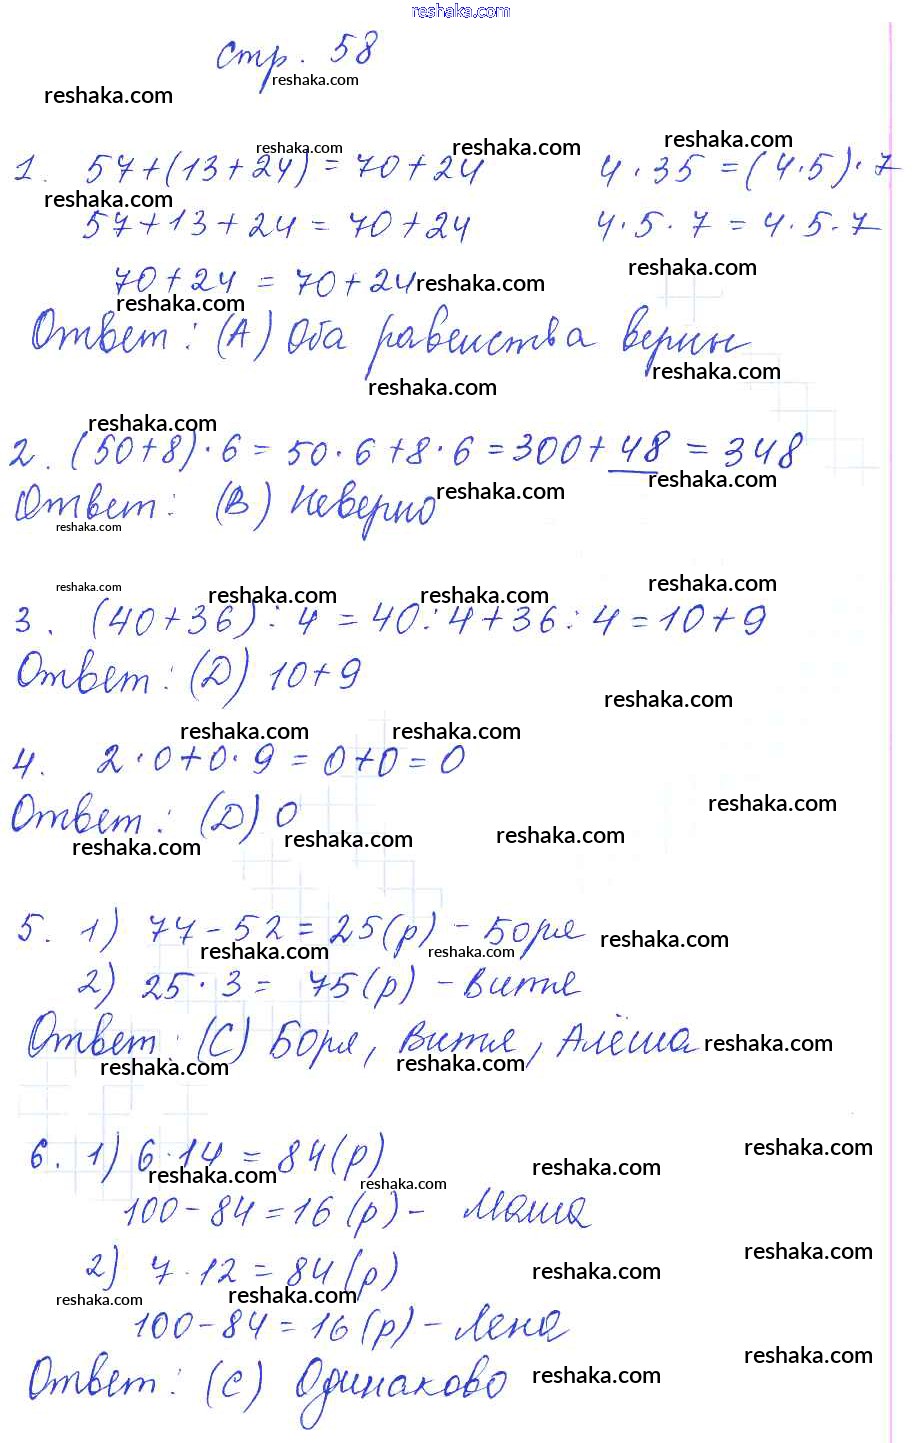 reshaka.com
стр. 58
reshaka.com
reshaka.com
reshaka.com
reshaka.com
reshaka.com
1. 57+(13+24)=70+24 4·35=(4·5)·7
reshaka.com
57+13+24=70+24 4·5·7=4·5·7
reshaka.com
70+24=70+24
reshaka.com
reshaka.com
Ответ: (А) Оба равенства верны
reshaka.com
reshaka.com
reshaka.com
2. (50+8)·6=50·6+8·6=300+48=348
reshaka.com
reshaka.com
Ответ: (В) Неверно
reshaka.com
reshaka.com
reshaka.com
reshaka.com
reshaka.com
3. (40+36):4=40:4+36:4=10+9
Ответ: (D) 10+9
reshaka.com
reshaka.com
reshaka.com
4. 2·0+0·9=0+0=0
reshaka.com
Ответ: (D) 0
reshaka.com
reshaka.com
reshaka.com
5. 1) 77-52=25(р) - Боря
reshaka.com
reshaka.com
reshaka.com
2) 25·3= 75(р) - Витя
Ответ: (С) Боря, Витя, Алёша
reshaka.com
reshaka.com
reshaka.com
6. 1) 6·14=84(р)
reshaka.com
reshaka.com
reshaka.com
reshaka.com
100-84=16(р)- Маша
reshaka.com
2) 7·12=84(р)
reshaka.com
reshaka.com
reshaka.com
100-84=16(р)-Лена
reshaka.com
Ответ: (С) Одинаково
reshaka.com